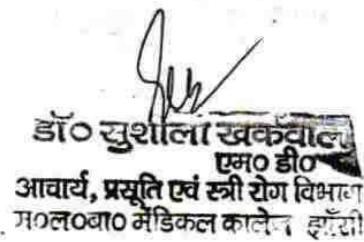 डॉ० सुशीला खर्कवाल
एम० डी०
आचार्य, प्रसूति एवं स्त्री रोग विभाग
म०ल०बा० मेडिकल कालेज झाँसी